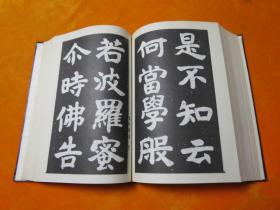 是不知云
何當學般
若波羅蜜
尒時佛告